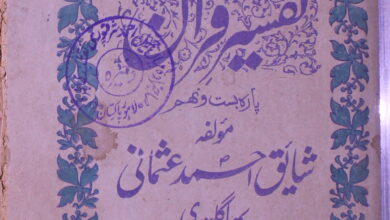 تفسیر قرآن
پارہ بست و نہم
مؤلفہ
شایق احمد عثمانی
بھاگلپوری